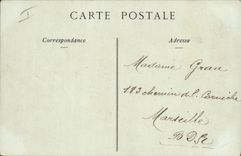 I
CARTE POSTALE
Correspondance
Adresse
Madame Grau
183 chemin d. l. Corniche
Marseille
B D R